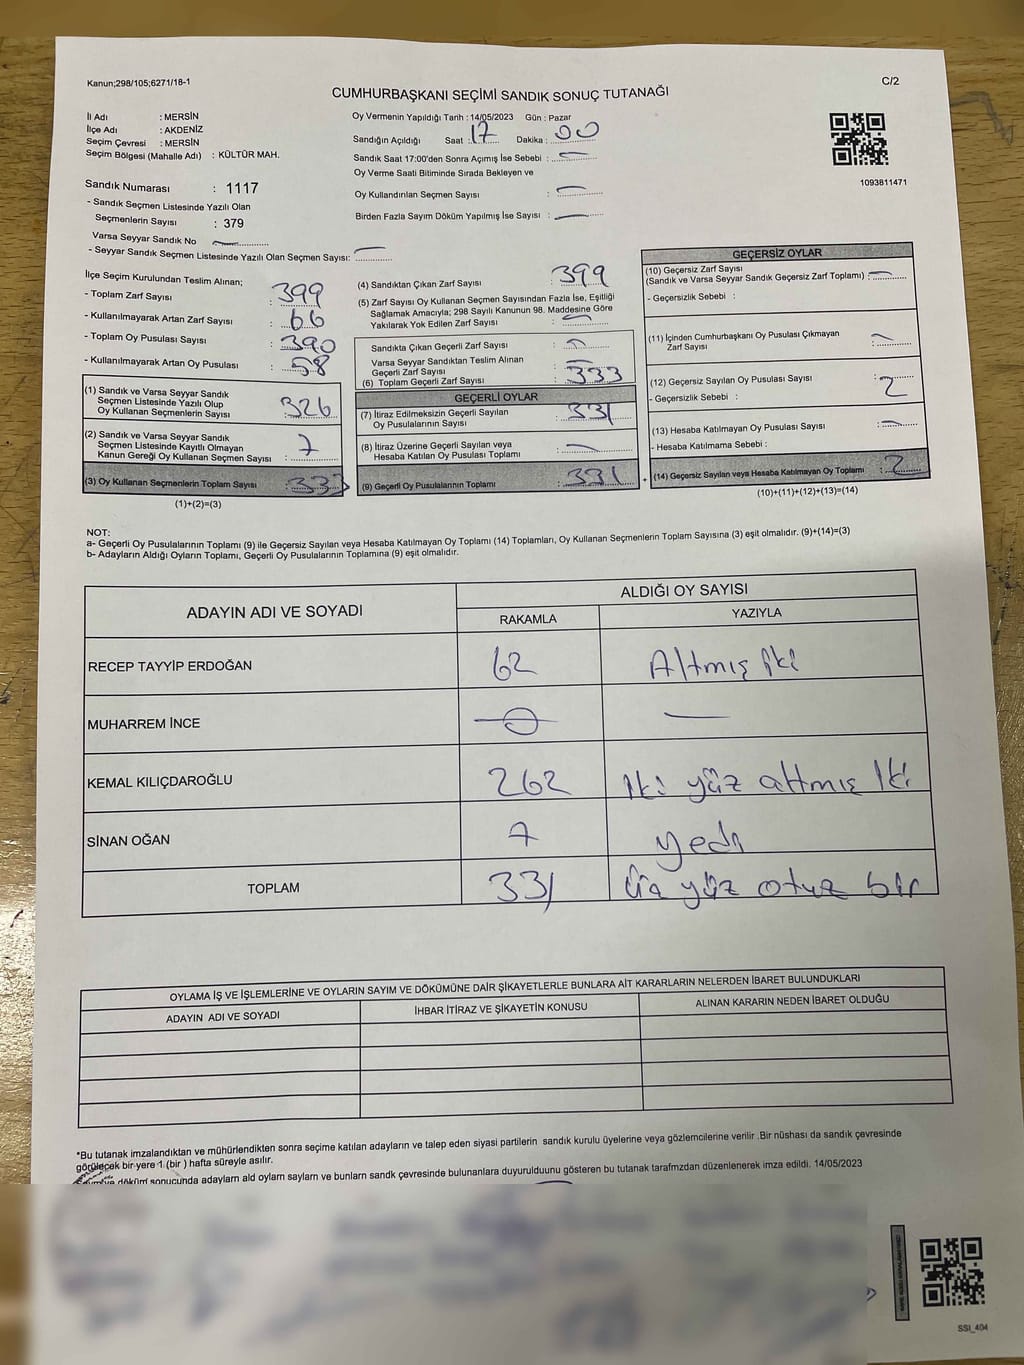 Kanun;298/105;6271/18-1
C/2
CUMHURBAŞKANI SEÇİMİ SANDIK SONUÇ TUTANAĞI
İl Adı : MERSİN
İlçe Adı : AKDENİZ
Seçim Çevresi : MERSİN
Seçim Bölgesi (Mahalle Adı) : KÜLTÜR MAH.
Sandık Numarası : 1117
- Sandık Seçmen Listesinde Yazılı Olan
Seçmenlerin Sayısı : 379
Varsa Seyyar Sandık No
- Seyyar Sandık Seçmen Listesinde Yazılı Olan Seçmen Sayısı:
Oy Vermenin Yapıldığı Tarih : 14/05/2023 Gün : Pazar
Sandığın Açıldığı Saat : 17 Dakika : 00
Sandık Saat 17:00'den Sonra Açımış İse Sebebi :
Oy Verme Saati Bitiminde Sırada Bekleyen ve
Oy Kullandırılan Seçmen Sayısı :
Birden Fazla Sayım Döküm Yapılmış İse Sayısı :
1093811471
İlçe Seçim Kurulundan Teslim Alınan;
- Toplam Zarf Sayısı : 399
- Kullanılmayarak Artan Zarf Sayısı : 66
- Toplam Oy Pusulası Sayısı : 390
- Kullanılmayarak Artan Oy Pusulası : 58
(1) Sandık ve Varsa Seyyar Sandık
Seçmen Listesinde Yazılı Olup
Oy Kullanan Seçmenlerin Sayısı : 326
(2) Sandık ve Varsa Seyyar Sandık
Seçmen Listesinde Kayıtlı Olmayan
Kanun Gereği Oy Kullanan Seçmen Sayısı : 7
(3) Oy Kullanan Seçmenlerin Toplam Sayısı : 333
(1)+(2)=(3)
(4) Sandıktan Çıkan Zarf Sayısı : 399
(5) Zarf Sayısı Oy Kullanan Seçmen Sayısından Fazla İse, Eşitliği
Sağlamak Amacıyla; 298 Sayılı Kanunun 98. Maddesine Göre
Yakılarak Yok Edilen Zarf Sayısı :
Sandıkta Çıkan Geçerli Zarf Sayısı :
Varsa Seyyar Sandıktan Teslim Alınan
Geçerli Zarf Sayısı :
(6) Toplam Geçerli Zarf Sayısı : 333
GEÇERLİ OYLAR
(7) İtiraz Edilmeksizin Geçerli Sayılan
Oy Pusulalarının Sayısı : 331
(8) İtiraz Üzerine Geçerli Sayılan veya
Hesaba Katılan Oy Pusulası Toplamı :
(9) Geçerli Oy Pusulalarının Toplamı : 331
+
GEÇERSİZ OYLAR
(10) Geçersiz Zarf Sayısı
(Sandık ve Varsa Seyyar Sandık Geçersiz Zarf Toplamı) :
- Geçersizlik Sebebi :
(11) İçinden Cumhurbaşkanı Oy Pusulası Çıkmayan
Zarf Sayısı :
(12) Geçersiz Sayılan Oy Pusulası Sayısı : 2
- Geçersizlik Sebebi :
(13) Hesaba Katılmayan Oy Pusulası Sayısı :
- Hesaba Katılmama Sebebi :
(14) Geçersiz Sayılan veya Hesaba Katılmayan Oy Toplamı : 2
(10)+(11)+(12)+(13)=(14)
NOT:
a- Geçerli Oy Pusulalarının Toplamı (9) ile Geçersiz Sayılan veya Hesaba Katılmayan Oy Toplamı (14) Toplamları, Oy Kullanan Seçmenlerin Toplam Sayısına (3) eşit olmalıdır. (9)+(14)=(3)
b- Adayların Aldığı Oyların Toplamı, Geçerli Oy Pusulalarının Toplamına (9) eşit olmalıdır.
ADAYIN ADI VE SOYADI
ALDIĞI OY SAYISI
RAKAMLA YAZIYLA
RECEP TAYYİP ERDOĞAN 62 Altmış iki
MUHARREM İNCE
KEMAL KILIÇDAROĞLU 262 İki yüz altmış İki
SİNAN OĞAN 7 yedi
TOPLAM 331 üç yüz otuz bir
OYLAMA İŞ VE İŞLEMLERİNE VE OYLARIN SAYIM VE DÖKÜMÜNE DAİR ŞİKAYETLERLE BUNLARA AİT KARARLARIN NELERDEN İBARET BULUNDUKLARI
ADAYIN ADI VE SOYADI İHBAR İTİRAZ VE ŞİKAYETİN KONUSU ALINAN KARARIN NEDEN İBARET OLDUĞU
*Bu tutanak imzalandıktan ve mühürlendikten sonra seçime katılan adayların ve talep eden siyasi partilerin sandık kurulu üyelerine veya gözlemcilerine verilir .Bir nüshası da sandık çevresinde
görülecek bir yere 1 (bir ) hafta süreyle asılır.
dökümü sonucunda adayların ald oyların saylarn ve bunların sandk çevresinde bulunanlara duyurulduunu gösteren bu tutanak tarafmzdan düzenlenerek imza edildi. 14/05/2023
SSI_404